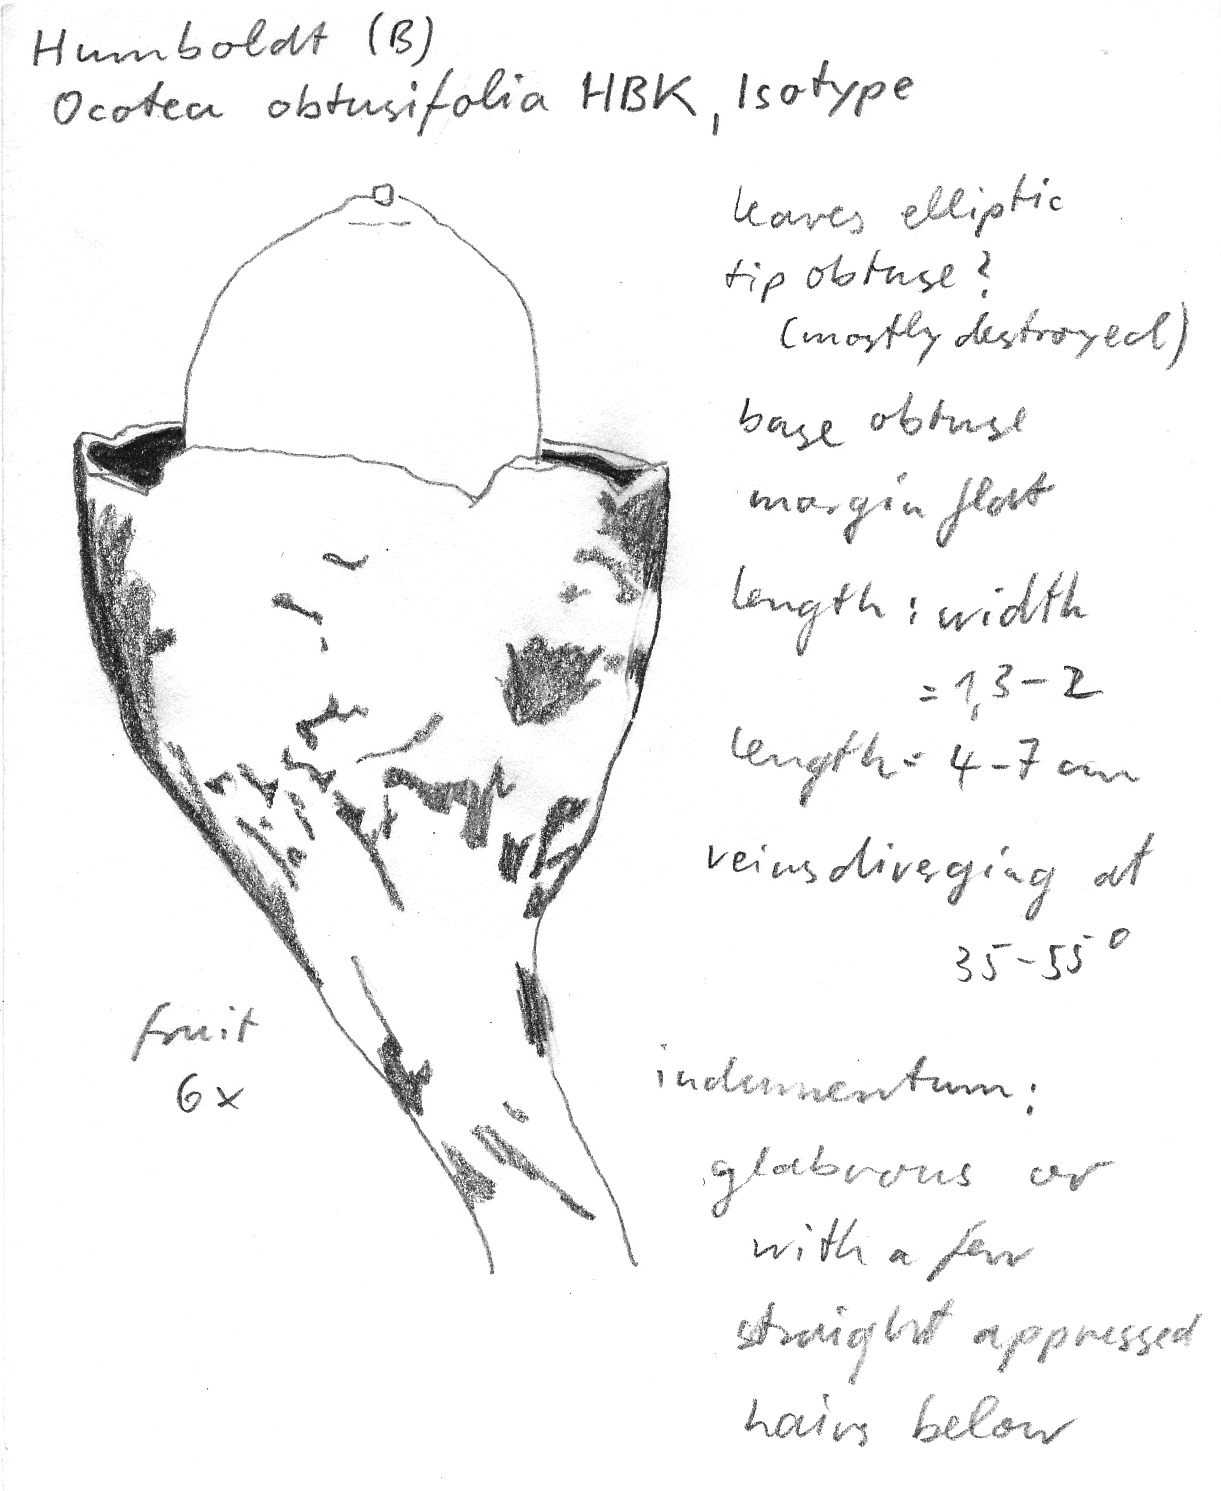 Humboldt (B)
Ocotea obtusifolia HBK, Isotype
leaves elliptic
tip obtuse?
(mostly destroyed)
base obtuse
margin flat
length : width
= 1,3-2
length = 4-7 cm
veins diverging at
35-55°
fruit
6x
indumentum:
glabrous or
with a few
straight appressed
hairs below